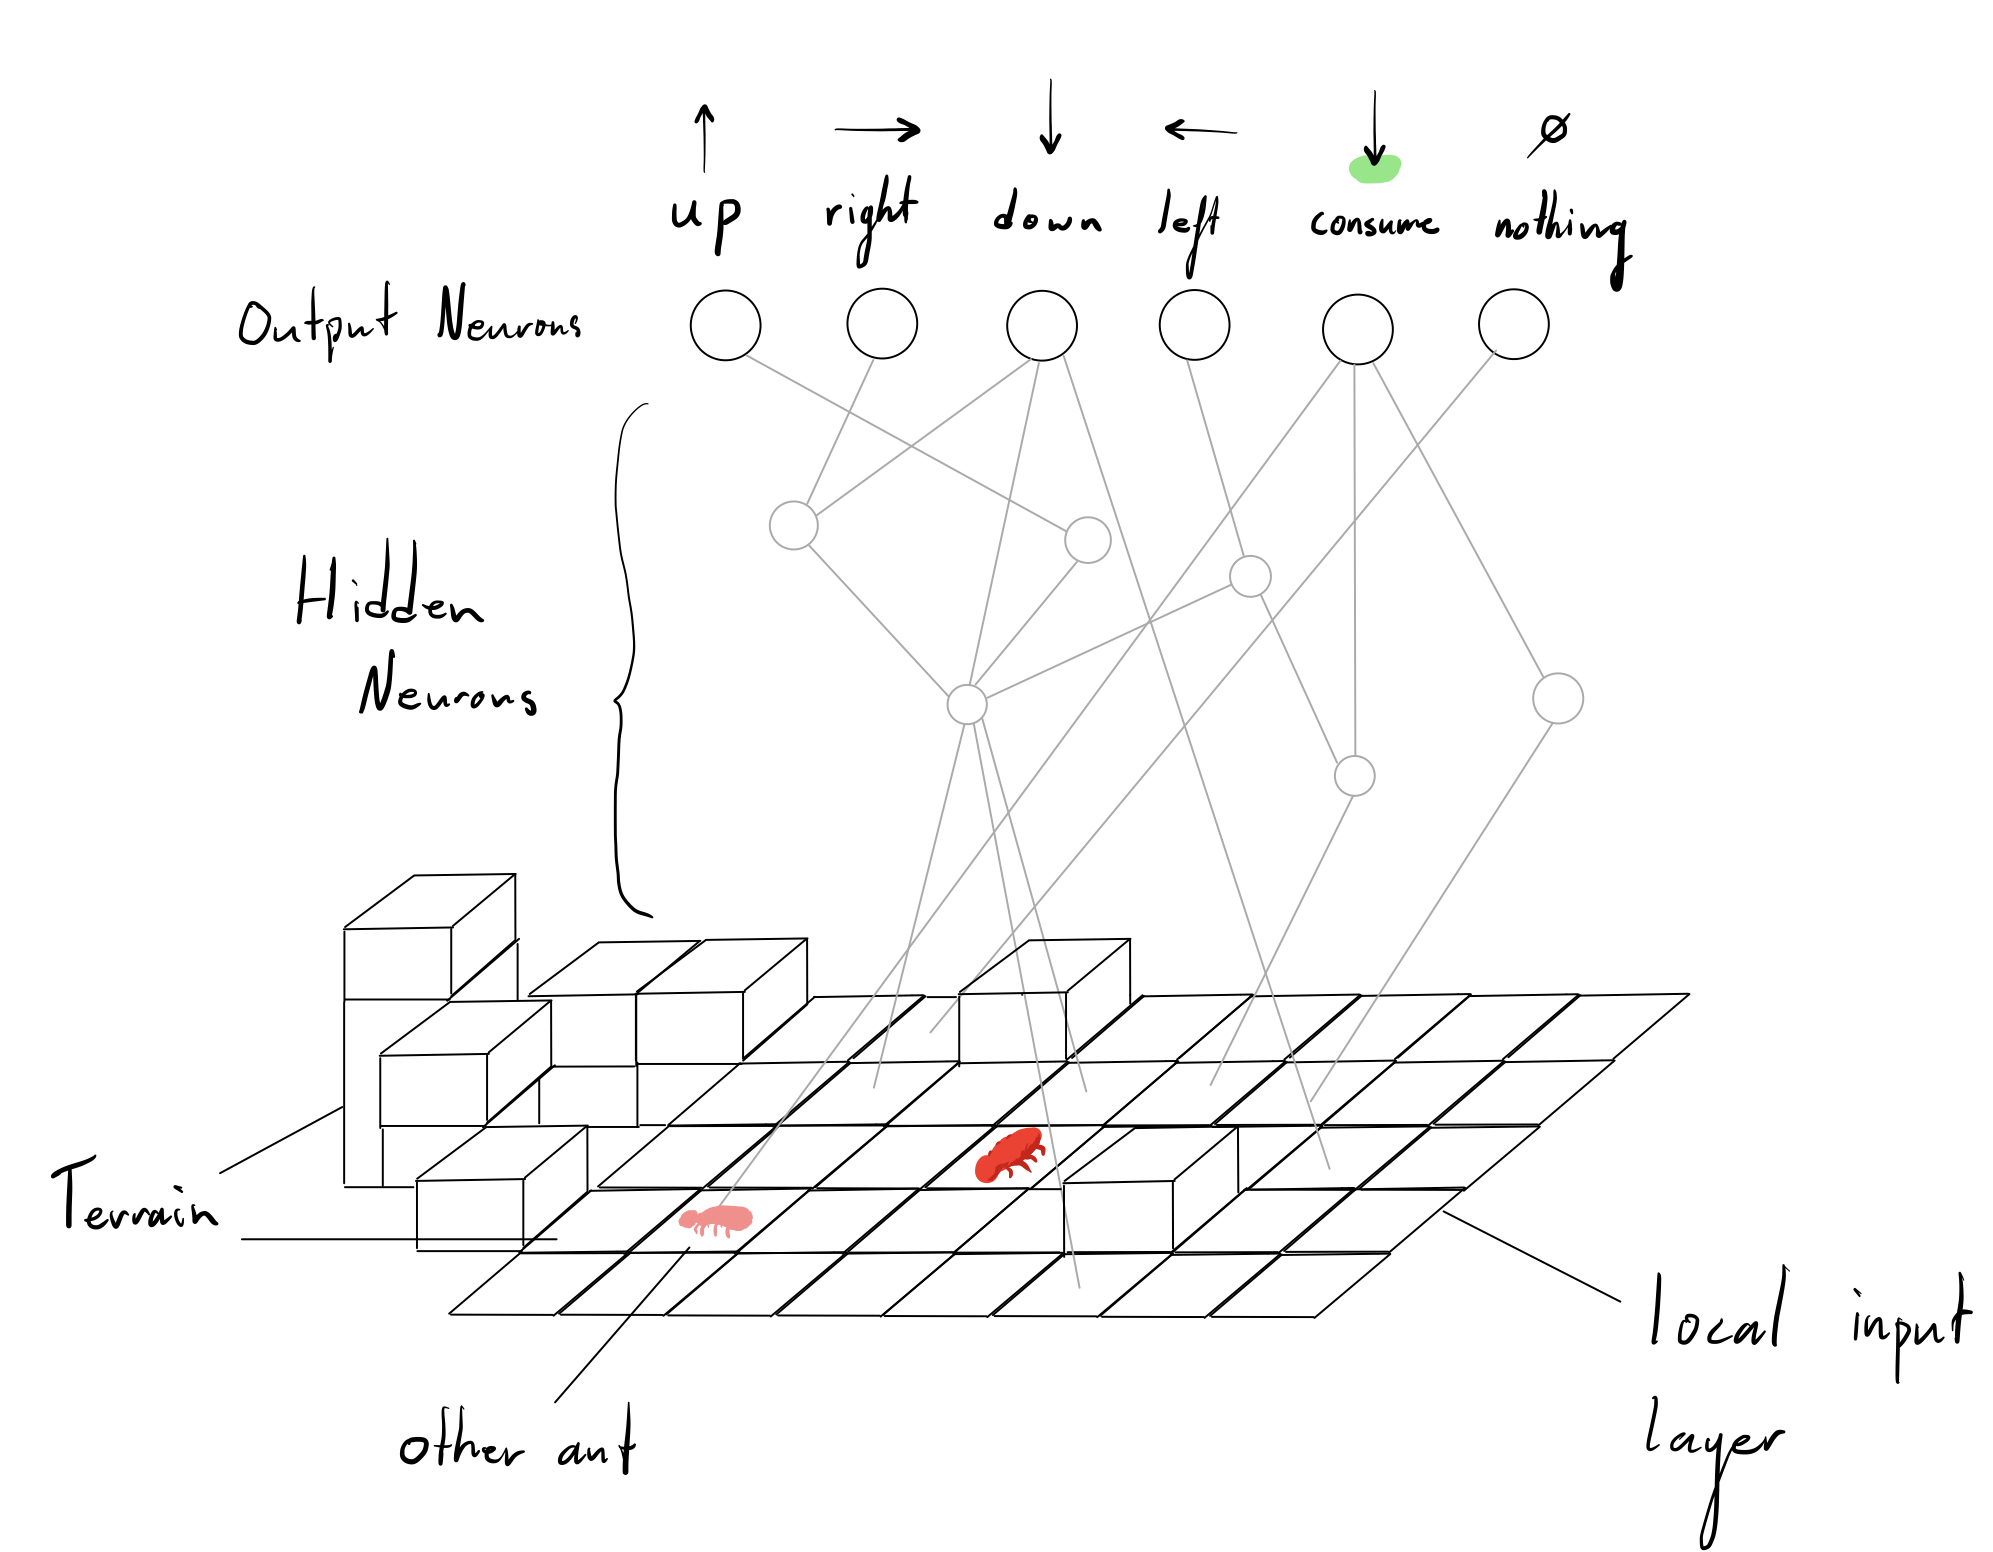 up right down left consume nothing
Output Neurons
Hidden
Neurons
Terrain
other ant
local input
layer